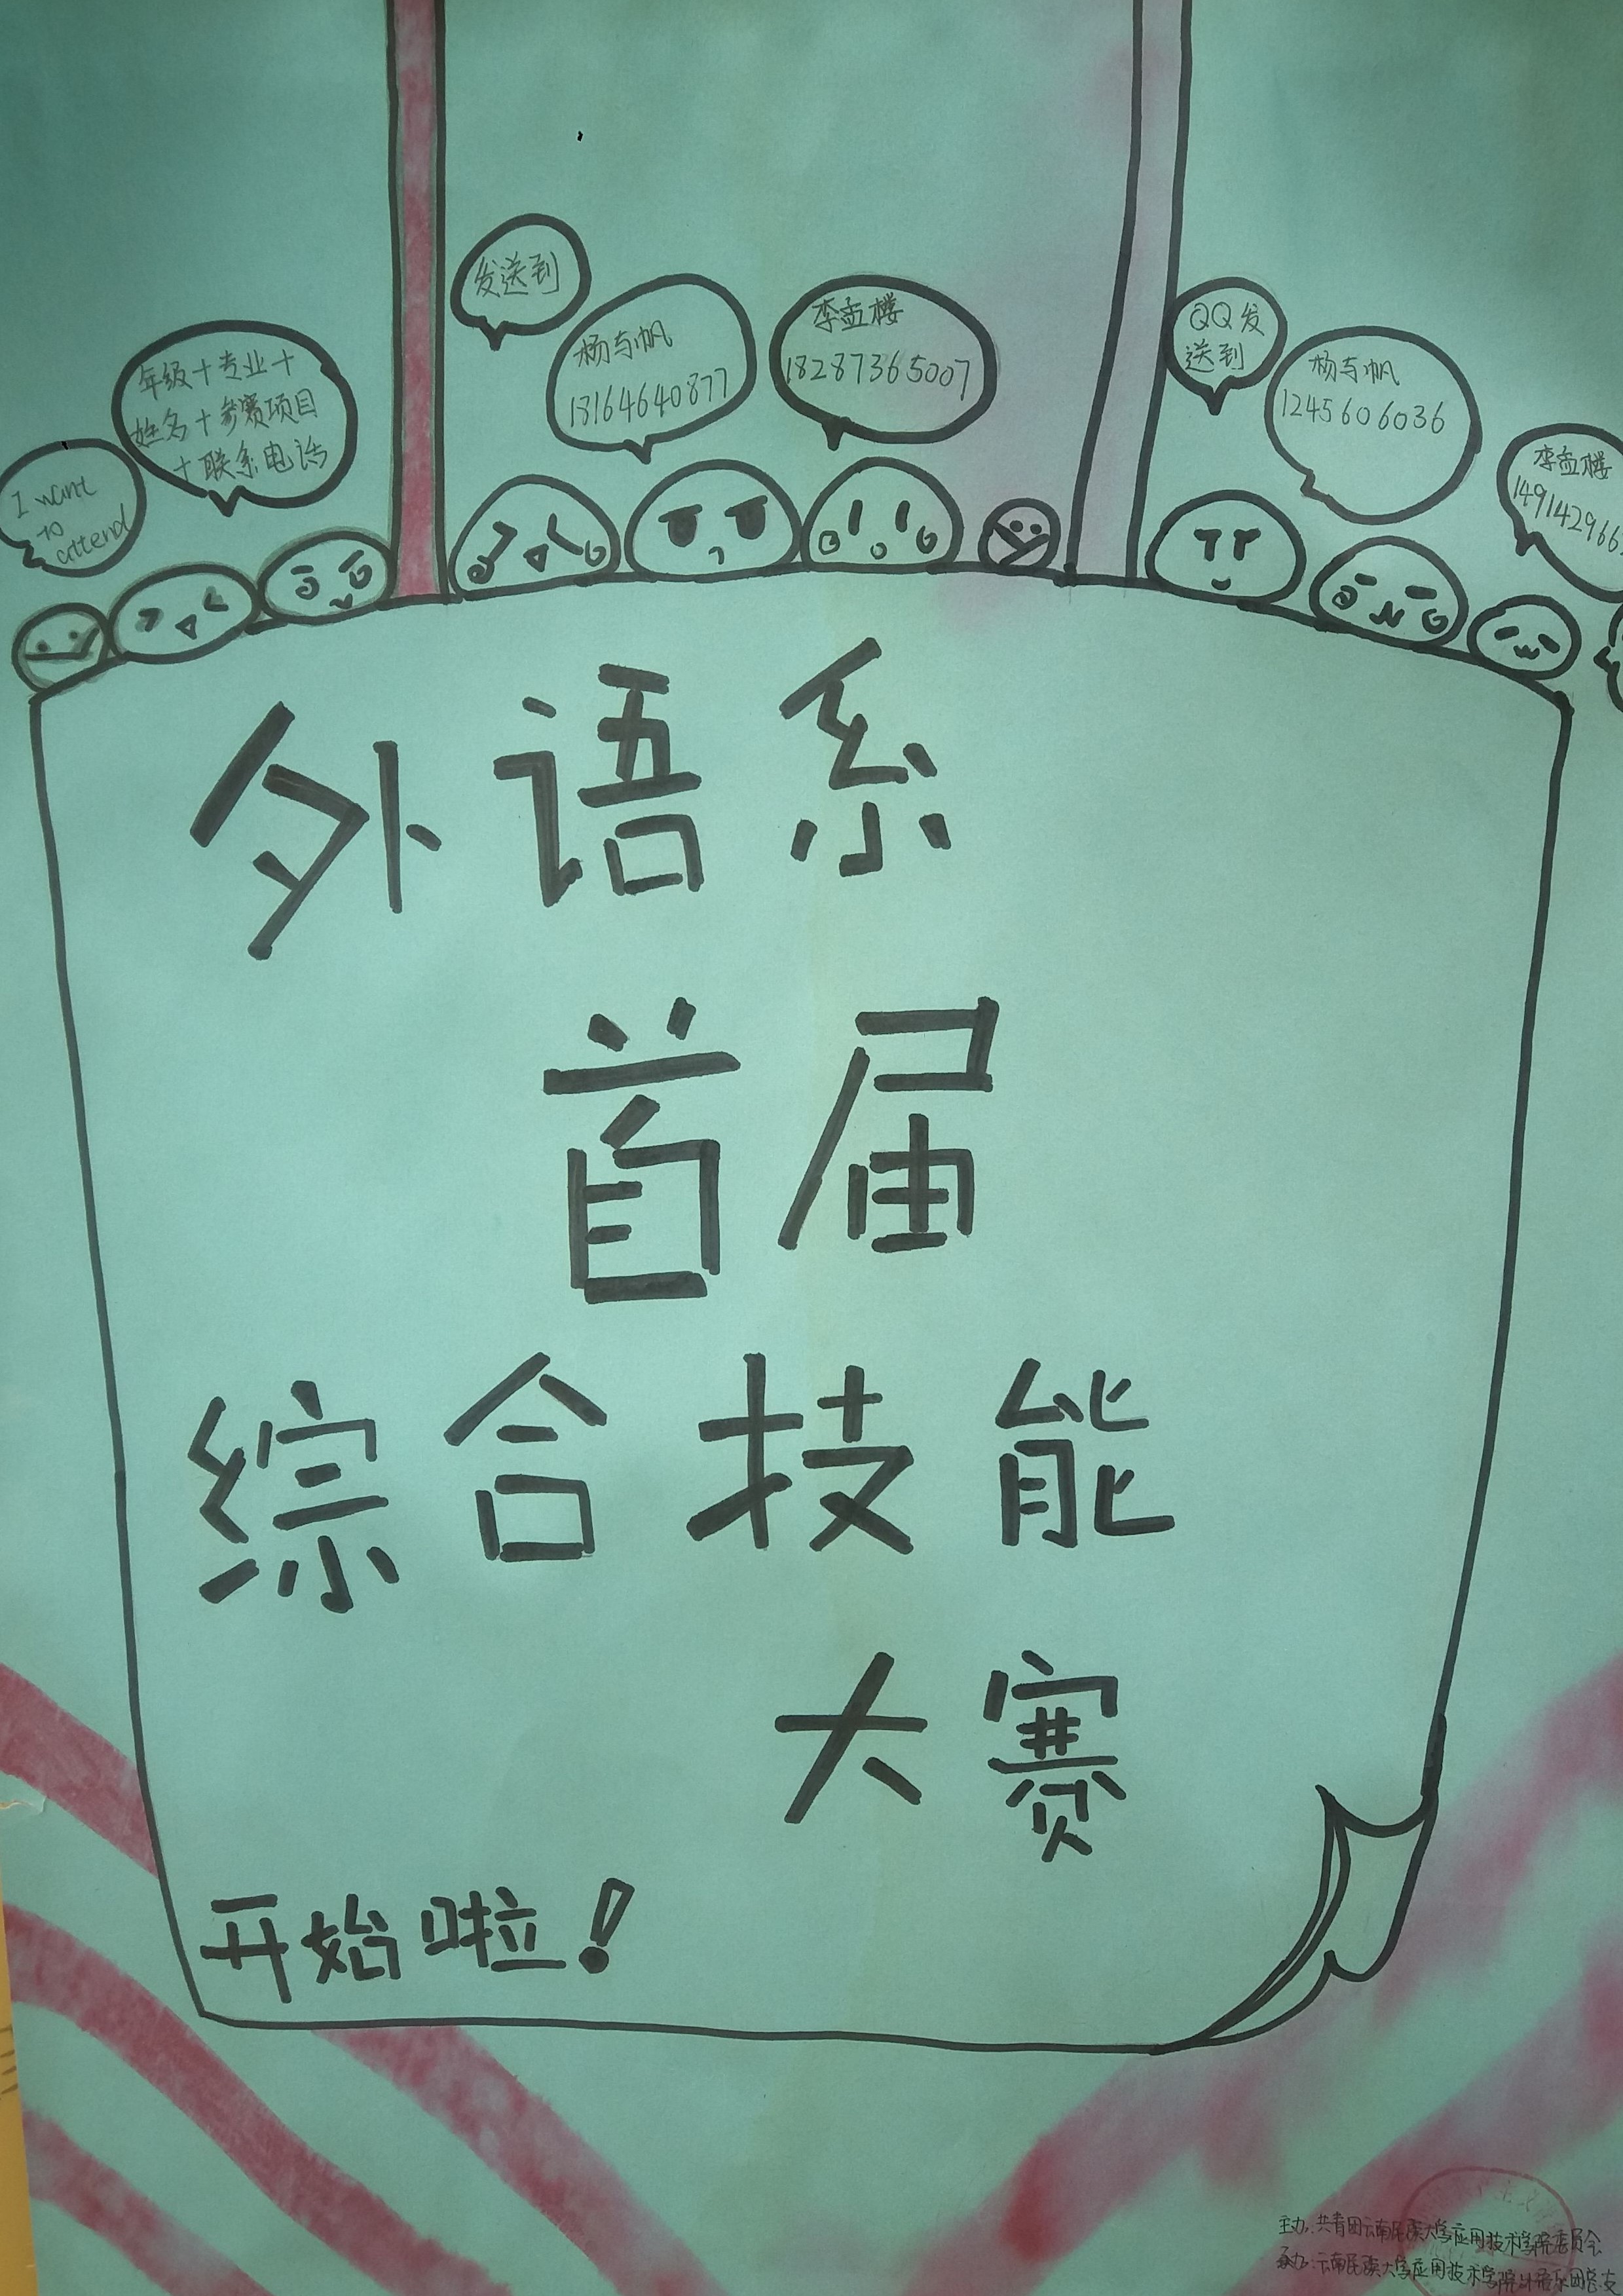 I want
to
attend
年级+专业+
姓名+参赛项目
+联系电话
发送到
杨与帆
18164640877
李孟楼
18287365007
QQ发
送到
杨与帆
1245606036
李孟楼
149142966
外语系
首届
综合技能
大赛
开始啦!
主办:共青团云南民族大学应用技术学院委员会
承办:云南民族大学应用技术学院外语系团总支